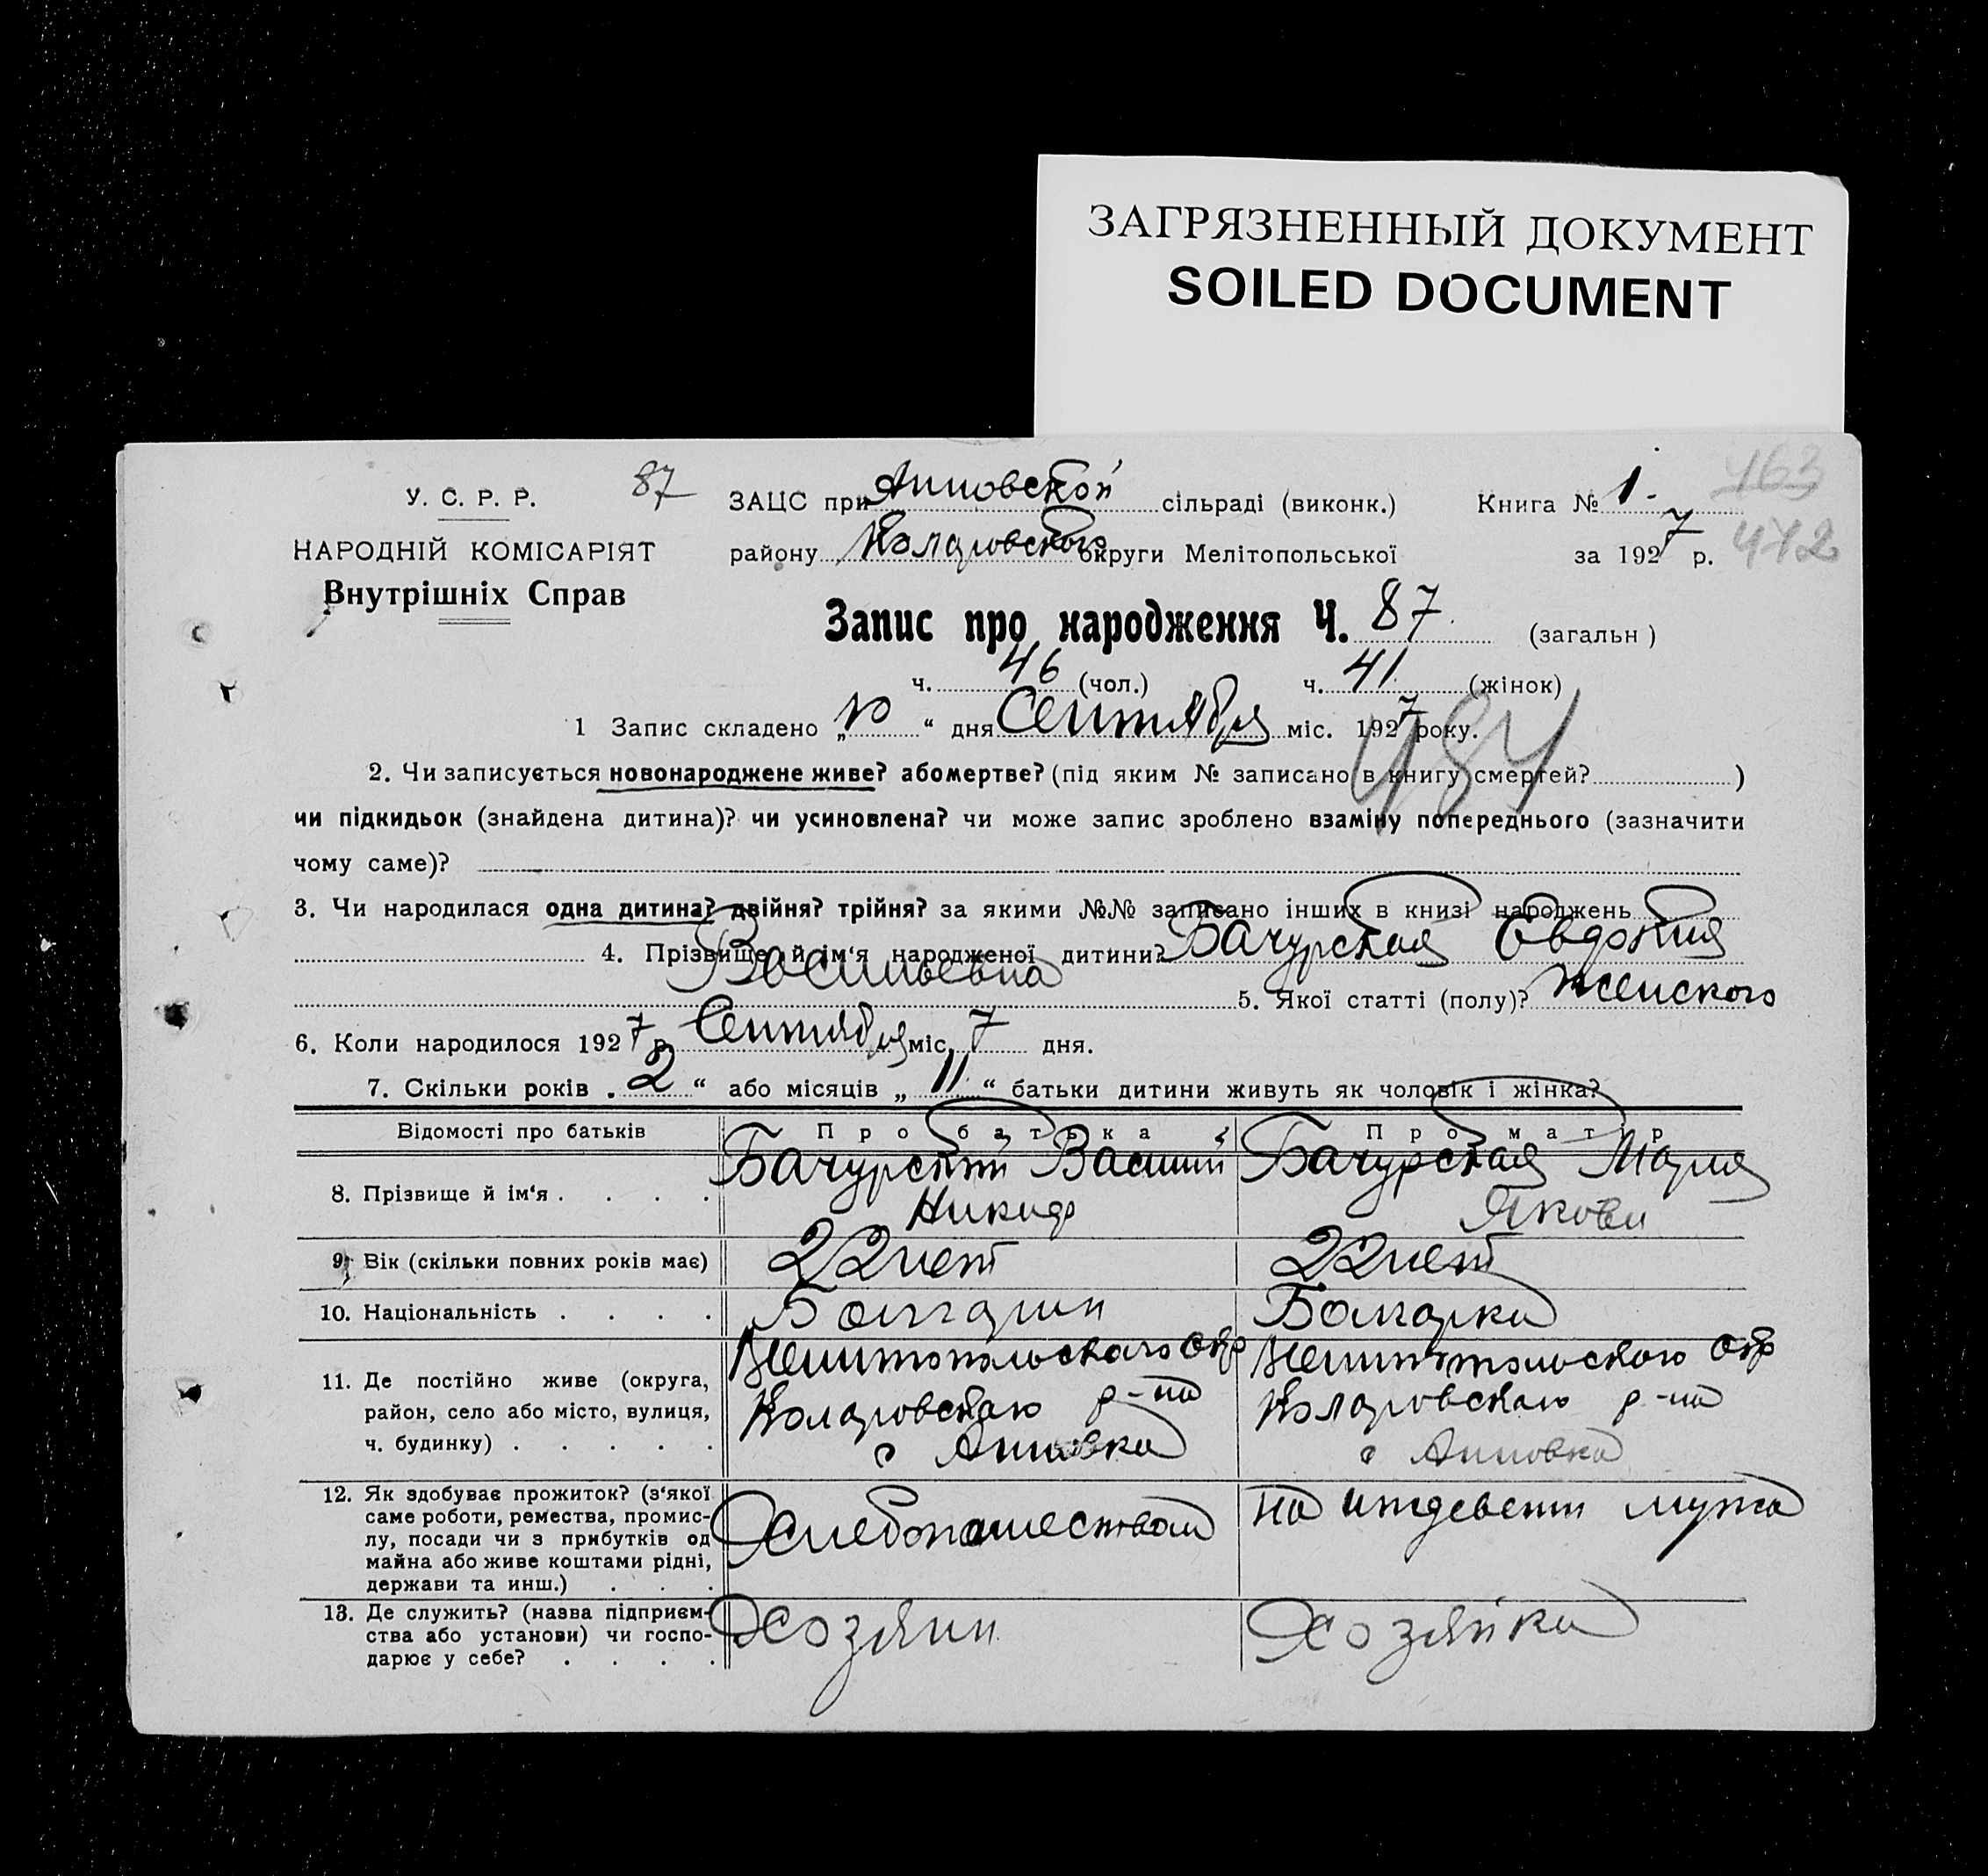 ЗАГРЯЗНЕННЫЙ ДОКУМЕНТ
SOILED DOCUMENT
У. С. Р. Р.
87
НАРОДНІЙ КОМІСАРІЯТ
Внутрішніх Справ
ЗАЦС при Анновской сільраді (виконк.)
Книга № 1.
463
району Коларовского округи Мелітопольської
за 1927 р.
472
Запис про народження Ч. 87 (загальн)
ч. 46 (чол.) ч. 41 (жінок)
1 Запис складено „10“ дня Сентября міс. 1927 року.
484
2. Чи записується новонароджене живе? або мертве? (під яким № записано в книгу смертей? )
чи підкидьок (знайдена дитина)? чи усиновлена? чи може запис зроблено взаміну попереднього (зазначити
чому саме)?
3. Чи народилася одна дитина? двійня? трійня? за якими №№ записано інших в книзі народжень
4. Прізвище й ім‘я народженої дитини? Бачурская Евдокия
Васильевна 5. Якої статті (полу)? женского
6. Коли народилося 1927 р. Сентября міс. 7 дня.
7. Скільки років „2“ або місяців „11“ батьки дитини живуть як чоловік і жінка?
Відомості про батьків
Про батька
Про матір
8. Прізвище й ім‘я . . . .
Бачурский Василий
Никиф
Бачурская Мария
Якови
9. Вік (скільки повних років має)
22 лет
22 лет
10. Національність . . . .
Болгарин
Болгарка
11. Де постійно живе (округа,
район, село або місто, вулиця,
ч. будинку) . . . . .
Мелитопольского Окр
Коларовского р-на
с Анновка
Мелитопольского Окр
Коларовского р-на
с Анновка
12. Як здобуває прожиток? (з‘якої
саме роботи, ремества, промис-
лу, посади чи з прибутків од
майна або живе коштами рідні,
держави та инш.) . . .
Хлебопашеством
на иждевени мужа
13. Де служить? (назва підприєм-
ства або установи) чи госпо-
дарює у себе? . . . .
Хозяин
Хозяйка